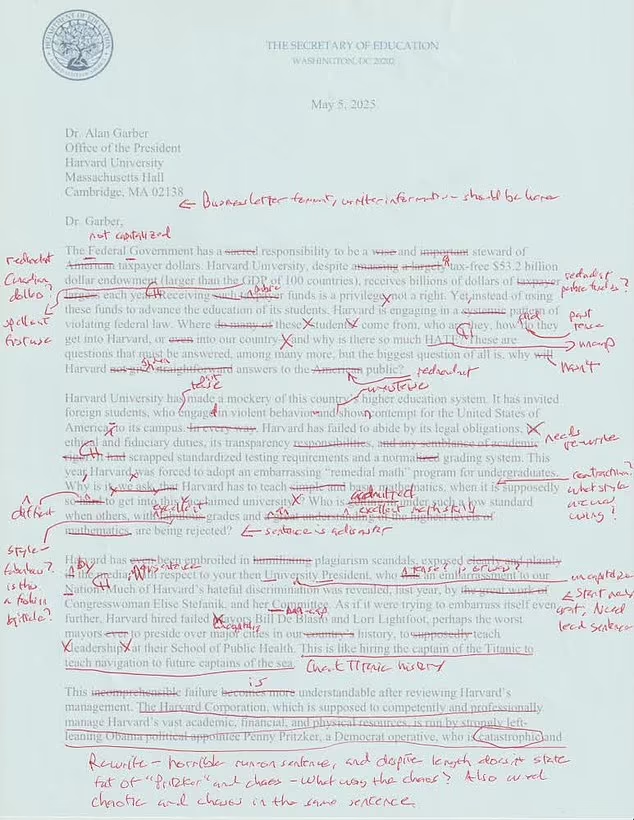 DEPARTMENT OF EDUCATION
THE SECRETARY OF EDUCATION
WASHINGTON, DC 20202
May 5, 2025
Dr. Alan Garber
Office of the President
Harvard University
Massachusetts Hall
Cambridge, MA 02138
← Business letter format, writer information - should be here
Dr. Garber,
not capitalized
The Federal Government has a sacred responsibility to be a wise and important steward of
American taxpayer dollars. Harvard University, despite amassing a largely tax-free $53.2 billion
dollar endowment (larger than the GDP of 100 countries), receives billions of dollars of taxpayer
largess each year. Receiving such taxpayer funds is a privilege, not a right. Yet, instead of using
these funds to advance the education of its students, Harvard is engaging in a systemic pattern of
violating federal law. Where do many of these "students" come from, who are they, how do they
get into Harvard, or even into our country - and why is there so much HATE? These are
questions that must be answered, among many more, but the biggest question of all is, why will
Harvard not give straightforward answers to the American public?
redundant
Canadian
dollars?
spell out
first use
redundant
public funds?
did
past
tense
uncap
won't
given
redundant
Harvard University has made a mockery of this country's higher education system. It has invited
foreign students, who engage in violent behavior and show contempt for the United States of
America, to its campus. In every way, Harvard has failed to abide by its legal obligations, its
ethical and fiduciary duties, its transparency responsibilities, and any semblance of academic
rigor. It had scrapped standardized testing requirements and a normalized grading system. This
year Harvard was forced to adopt an embarrassing "remedial math" program for undergraduates.
Why is it, we ask, that Harvard has to teach simple and basic mathematics, when it is supposedly
so hard to get into this acclaimed university? Who is getting in under such a low standard
when others, with fabulous grades and a great understanding of the highest levels of
mathematics, are being rejected?
needs
rewrite
contraction?
what style
are we
using?
difficult
admitted
excellent
← sentence is a disaster
style -
fabulous?
is this
a fashion
critique?
Harvard has even been embroiled in humiliating plagiarism scandals, exposed clearly and plainly
in the media, with respect to your then University President, who was an embarrassment to our
Nation. Much of Harvard's hateful discrimination was revealed, last year, by the great work of
Congresswoman Elise Stefanik, and her Committee. As if it were trying to embarrass itself even
further, Harvard hired failed Mayors Bill De Blasio and Lori Lightfoot, perhaps the worst
mayors ever to preside over major cities in our country's history, to supposedly teach
"leadership" at their School of Public Health. This is like hiring the captain of the Titanic to
teach navigation to future captains of the sea.
by
uncapitalize
← Start new
graf, Need
lead sentence
Check Titanic history
is
This incomprehensible failure becomes more understandable after reviewing Harvard's
management. The Harvard Corporation, which is supposed to competently and professionally
manage Harvard's vast academic, financial, and physical resources, is run by strongly left-
leaning Obama political appointee Penny Pritzker, a Democrat operative, who is catastrophic and
Rewrite - horrible run on sentence, and despite length doesn't state
tat of "Pritzker" and chaos - What was the chaos? Also avoid
chaotic and chaos in the same sentence.